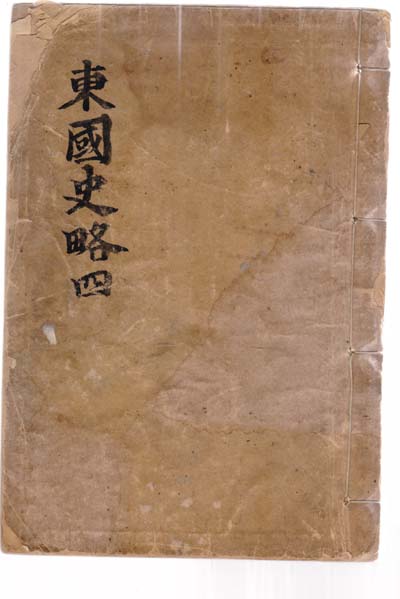 東國史略四